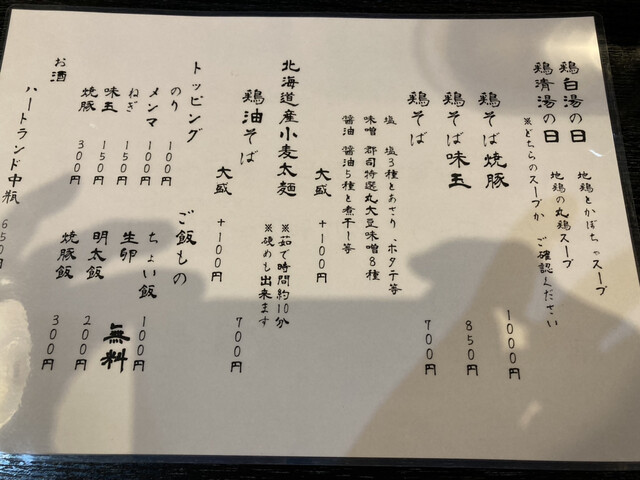 鶏白湯の日 地鶏とかぼちゃスープ
鶏清湯の日 地鶏の丸鶏スープ
※どちらのスープか ご確認ください
鶏そば焼豚 1000円
鶏そば味玉 850円
鶏そば 700円
塩 塩3種とあさり、ホタテ等
味噌 郡司特選丸大豆味噌8種
醤油 醤油5種と煮干し等
大盛 +100円
北海道産小麦太麺 ※茹で時間約10分
※硬めも出来ます
鶏油そば 700円
大盛 +100円
トッピング
のり 100円
メンマ 100円
ねぎ 150円
味玉 150円
焼豚 300円
ご飯もの
ちょい飯 100円
生卵 無料
明太飯 200円
焼豚飯 300円
お酒
ハートランド中瓶 650円